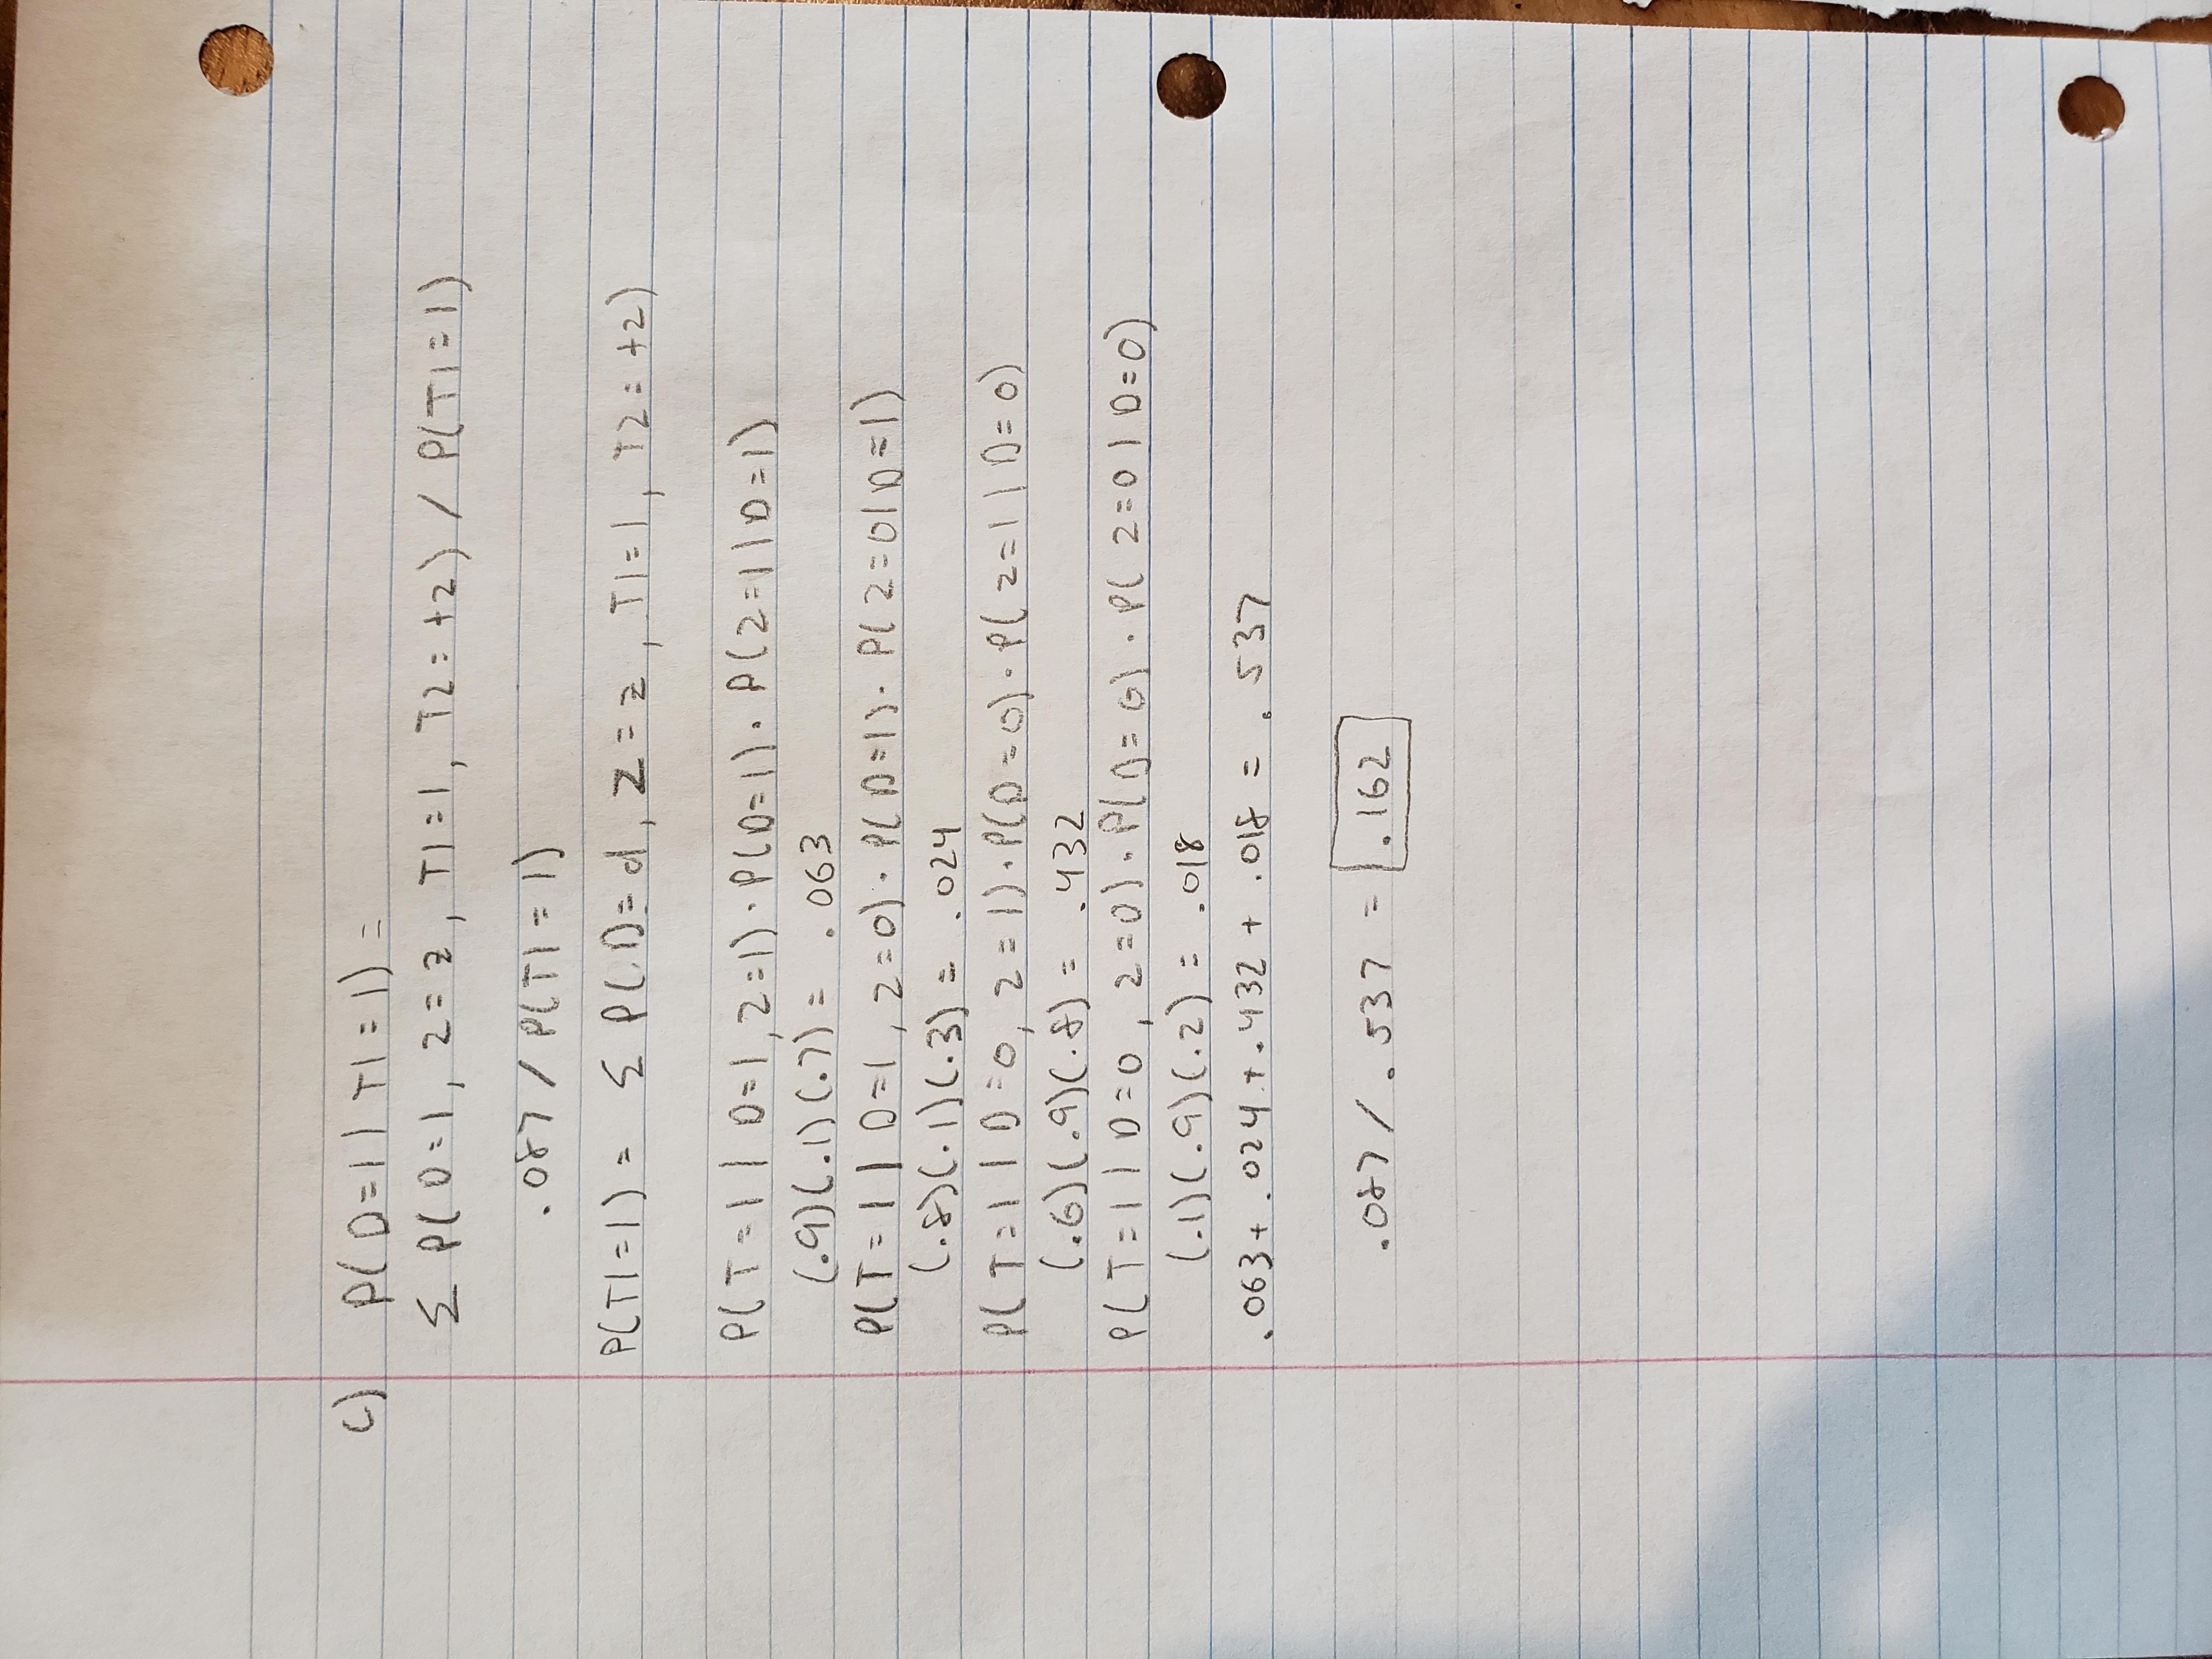 c) P(D=1 | T1=1) =
Σ P(D=1, Z=z, T1=1, T2=t2) / P(T1=1)
.087 / P(T1=1)
P(T1=1) = Σ P(D=d, Z=z, T1=1, T2=t2)
P(T=1 | D=1, Z=1) · P(D=1) · P(Z=1 | D=1)
(.9)(.1)(.7) = .063
P(T=1 | D=1, Z=0) · P(D=1) · P(Z=0 | D=1)
(.8)(.1)(.3) = .024
P(T=1 | D=0, Z=1) · P(D=0) · P(Z=1 | D=0)
(.6)(.9)(.8) = .432
P(T=1 | D=0, Z=0) · P(D=0) · P(Z=0 | D=0)
(.1)(.9)(.2) = .018
.063 + .024 + .432 + .018 = .537
.087 / .537 = .162